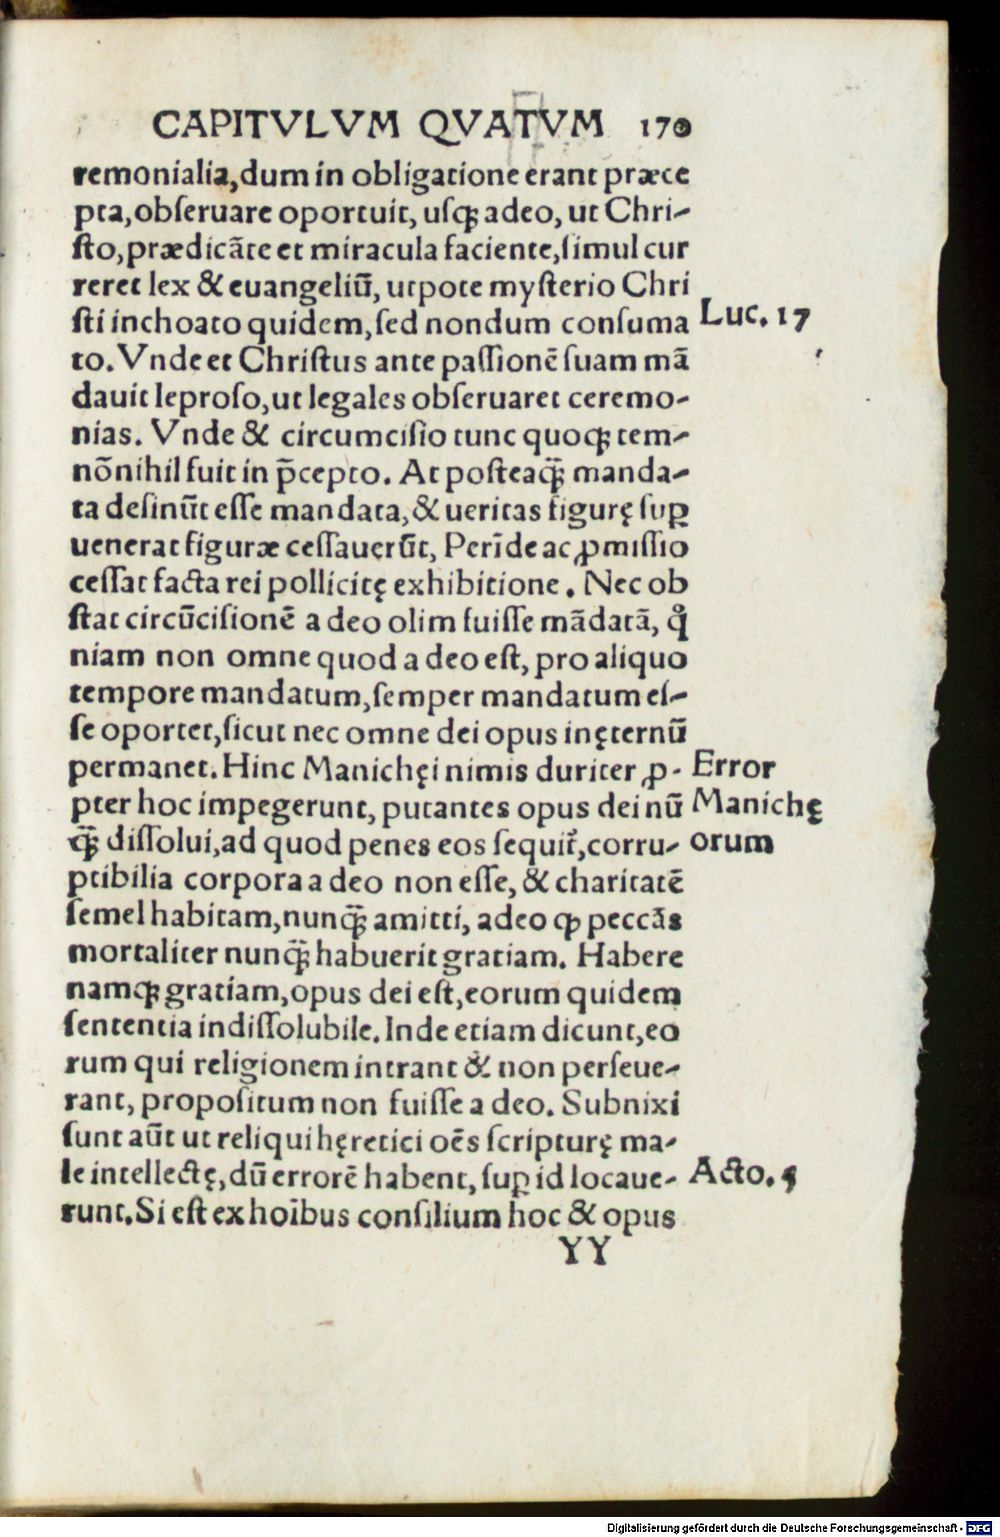 CAPITVLVM QVATVM 170
remonialia,dum in obligatione erant præce
pta,obſeruare oportuit, uſqꝫ adeo, ut Chri-
ſto,prædicāte et miracula faciente,ſimul cur
reret lex & euangeliū, utpote myſterio Chri
ſti inchoato quidem,ſed nondum conſuma
Luc. 17
to. Vnde et Chriſtus ante paſſionē ſuam mā
dauit leproſo,ut legales obſeruaret ceremo-
nias. Vnde & circumciſio tunc quoqꝫ tem-
nōnihil fuit in p̄cepto. At poſteaqꝫ̄ manda-
ta deſinūt eſſe mandata,& ueritas figurę ſuꝑ
uenerat figuræ ceſſauerūt, Perīde ac ꝓmiſſio
ceſſat facta rei pollicitę exhibitione. Nec ob
ſtat circūciſionē a deo olim fuiſſe mādatā, qͦ
niam non omne quod a deo eſt, pro aliquo
tempore mandatum,ſemper mandatum eſ-
ſe oportet,ſicut nec omne dei opus inęternū
permanet. Hinc Manichęi nimis duriter ꝓ-
Error
pter hoc impegerunt, putantes opus dei nū
Manichę
qꝫ̄ diſſolui,ad quod penes eos ſequit̃,corru-
orum
ptibilia corpora a deo non eſſe, & charitatē
ſemel habitam,nunqꝫ̄ amitti, adeo ꝙ peccās
mortaliter nunqꝫ̄ habuerit gratiam. Habere
namqꝫ gratiam,opus dei eſt,eorum quidem
ſententia indiſſolubile. Inde etiam dicunt,eo
rum qui religionem intrant & non perſeue-
rant, propoſitum non fuiſſe a deo. Subnixi
ſunt aūt ut reliqui hęretici oēs ſcripturę ma-
le intellectę,dū errorē habent, ſuꝑ id locaue-
Acto. 5
runt. Si eſt ex hoībus conſilium hoc & opus
YY
Digitalisierung gefördert durch die Deutsche Forschungsgemeinschaft - DFG